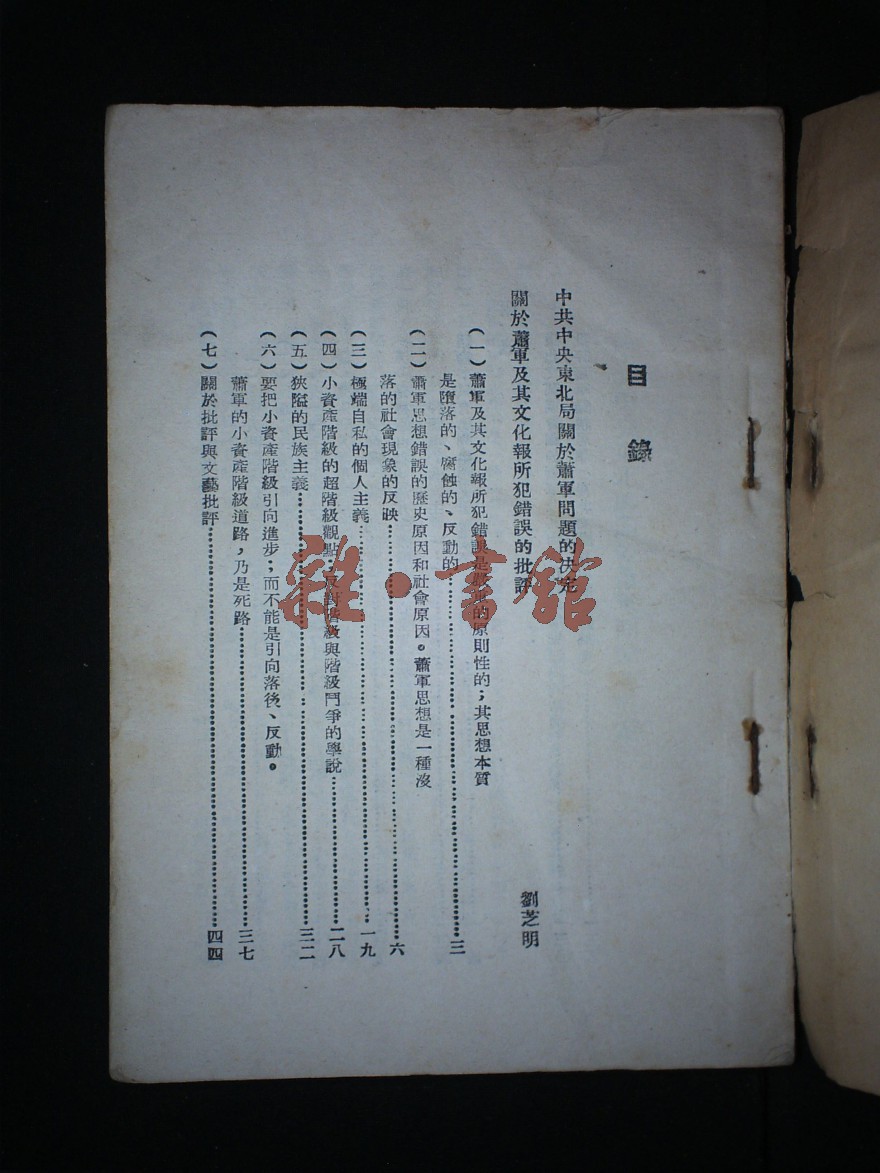 目錄
中共中央東北局關於蕭軍問題的決定
關於蕭軍及其文化報所犯錯誤的批評 劉芝明
(一)蕭軍及其文化報所犯錯誤是 的原則性的;其思想本質
是墮落的、腐蝕的、反動的 三
(二)蕭軍思想錯誤的歷史原因和社會原因。蕭軍思想是一種沒
落的社會現象的反映 六
(三)極端自私的個人主義 一九
(四)小資產階級的超階級觀點:反對階級與階級鬥爭的學說 二八
(五)狹隘的民族主義 三二
(六)要把小資產階級引向進步;而不能是引向落後、反動。
蕭軍的小資產階級道路,乃是死路 三七
(七)關於批評與文藝批評 四四
雜·書館